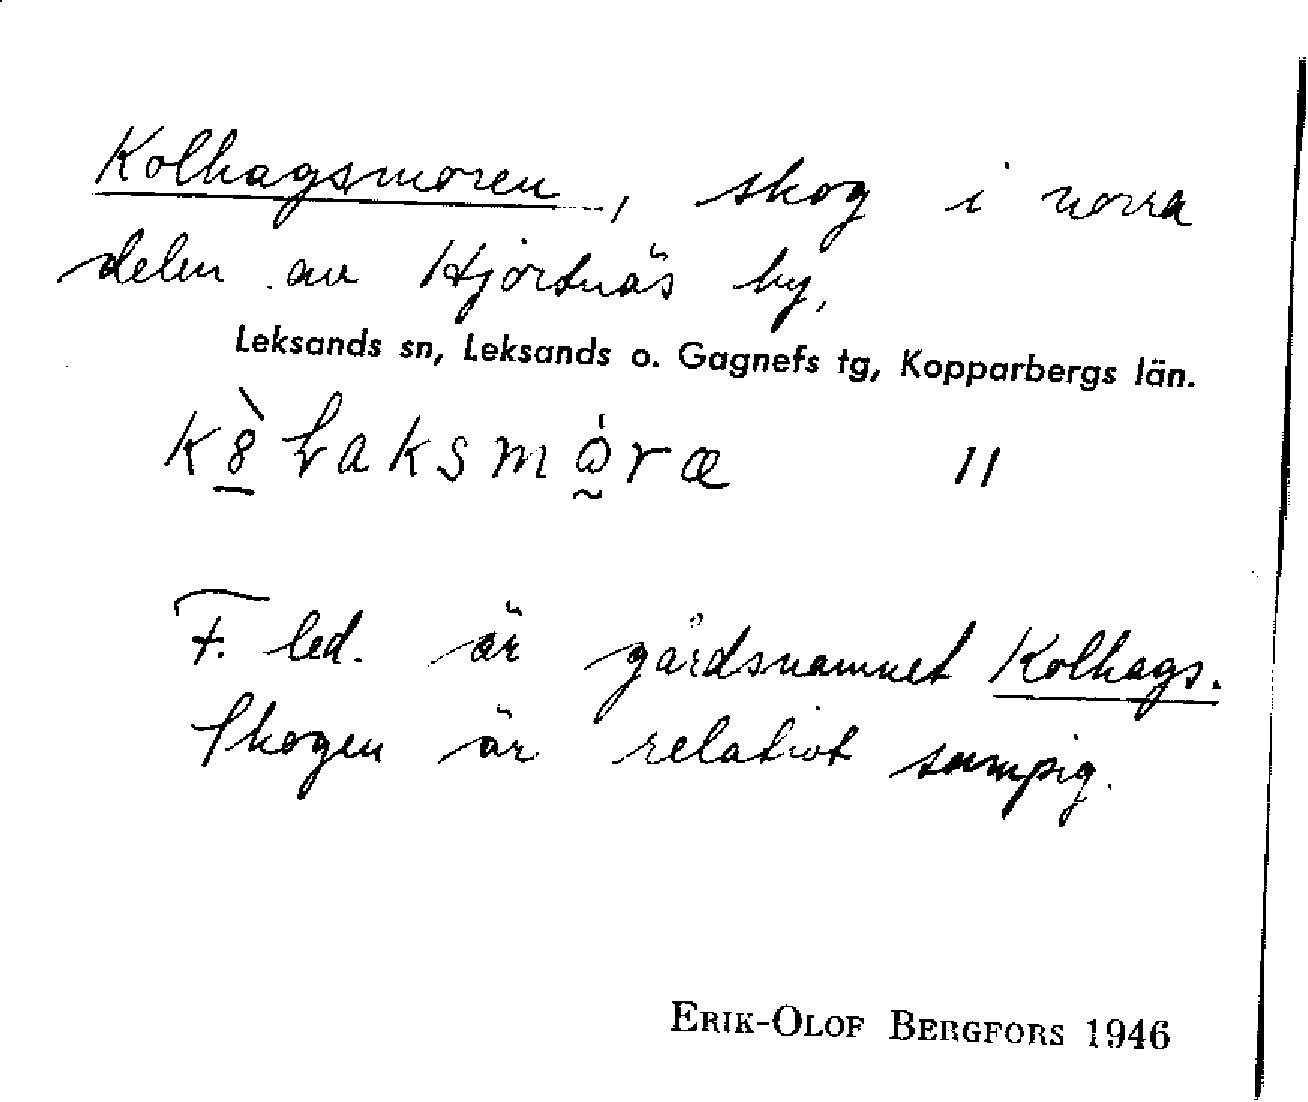 Kolhagsmoren, skog i norra
delen av Hjortnäs by,
Leksands sn, Leksands o. Gagnefs tg, Kopparbergs län.
11
F. led. är gårdsnamnet Kolhags.
Skogen är relativt sumpig.
ERIK-OLOF BERGFORS 1946